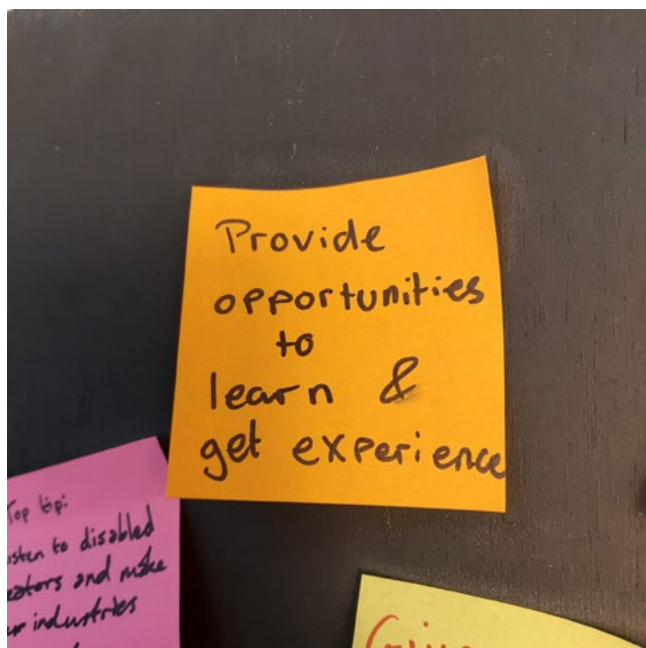 Provide
opportunities
to
learn &
get experience
Top tip:
to disabled
and make
industries